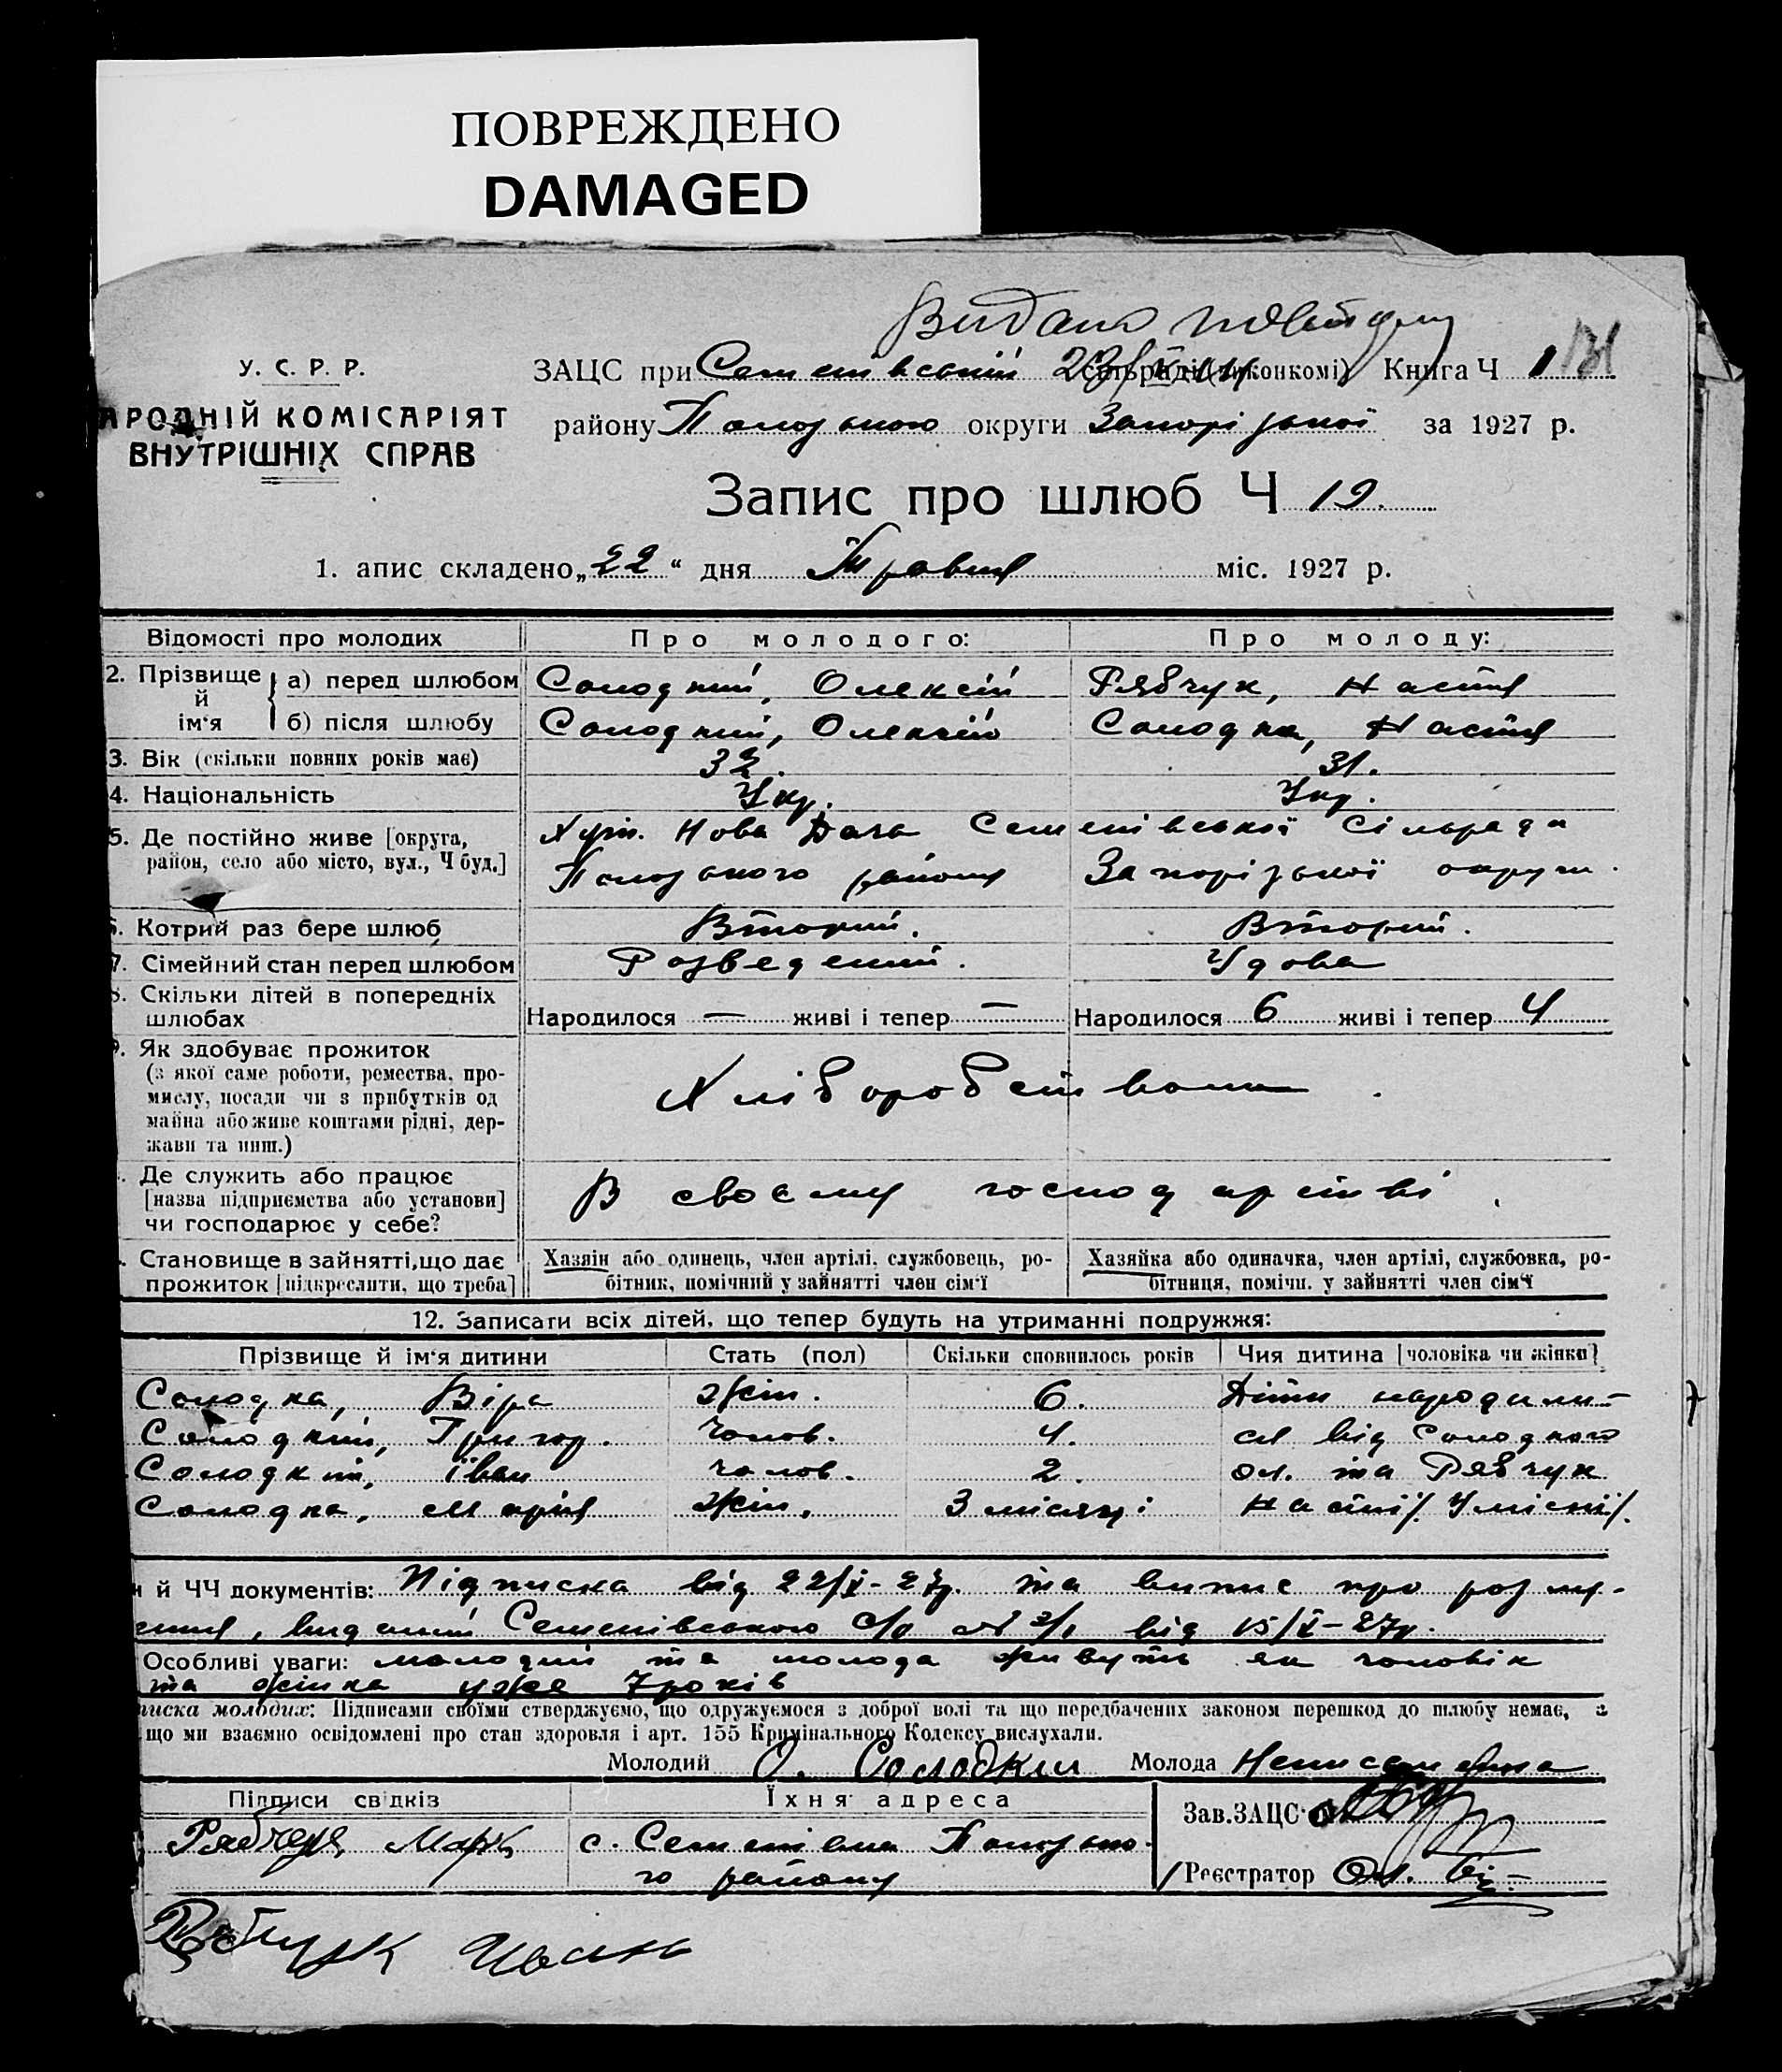 ПОВРЕЖДЕНО
DAMAGED
Видано
У. С. Р. Р.
АРОДНІЙ КОМІСАРІЯТ
ВНУТРІШНІХ СПРАВ
ЗАЦС при Семенівській сільраді (виконкомі) Книга Ч 1
району Пологського округи Запорізької за 1927 р.
Запис про шлюб Ч 19.
1. апис складено „22“ дня Травня міс. 1927 р.
Відомості про молодих Про молодого: Про молоду:
2. Прізвище й ім‘я
а) перед шлюбом Солодкий, Олексій Рябчук, Настя
б) після шлюбу Солодкий, Олексій Солодка, Настя
3. Вік (скільки повних років має) 32. 31.
4. Національність Укр. Укр.
5. Де постійно живе [округа, Хут. Нова Дача Семенівської Сільради
район, село або місто, вул., Ч буд.] Пологського району Запорізької округи.
6. Котрий раз бере шлюб Вторий. Вторий.
7. Сімейний стан перед шлюбом Розведений. Удова
8. Скільки дітей в попередніх
шлюбах Народилося — живі і тепер — Народилося 6 живі і тепер 4
9. Як здобуває прожиток
(з якої саме роботи, ремества, про-
мислу, посади чи з прибутків од
майна або живе коштами рідні, дер-
жави та инш.)
Хліборобством.
Де служить або працює
[назва підприємства або установи]
чи господарює у себе?
В своєму господарстві.
Становище в зайнятті, що дає
прожиток [підкреслити, що треба]
Хазяін або одинець, член артілі, службовець, ро-
бітник, помічний у зайнятті член сім‘ї
Хазяйка або одиначка, член артілі, службовка, ро-
бітниця, помічн. у зайнятті член сім‘ї
12. Записати всіх дітей, що тепер будуть на утриманні подружжя:
Прізвище й ім‘я дитини Стать (пол) Скільки сповнилось років Чия дитина [чоловіка чи жінки]
Солодка, Віра жін. 6. Діти народили-
Солодкий, Григор. чолов. 4. ся від Солодкого
Солодкий, Іван чолов. 2. Ол. та Рябчук
Солодка, Марія жін. 3 місяці Насті/.
й ЧЧ документів: Підписка від 22/V-27р. та випис про розлу-
чення, виданий Семенівського с/р від 15/V-27р.
Особливі уваги: молодий та молода живуть як чоловік
та жінка уже 7 років
писка молодих: Підписами своїми стверджуємо, що одружуємося з доброї волі та що передбачених законом перешкод до шлюбу немає, з
що ми взаємно освідомлені про стан здоровля і арт. 155 Кримінального Кодексу вислухали.
Молодий О. Солодкий Молода Неписьменна
Підписи свідків Їхня адреса Зав. ЗАЦС
Рябчук Марк с. Семенівка Пологсько-
го району
Реєстратор
Рябчук Иван